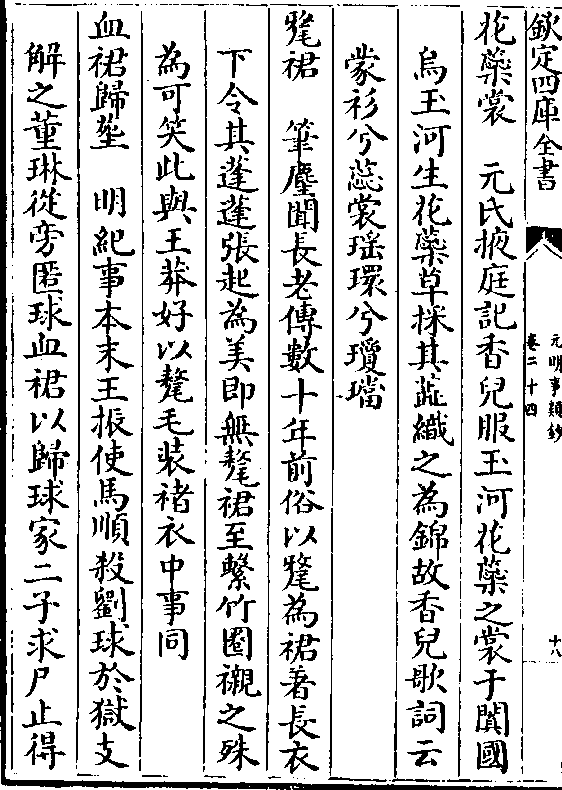 欽定四庫全書
元明事類鈔
卷二十四
十八
花蘂裳　元氏掖庭記香兒服玉河花蘂之裳于闐國
烏玉河生花蘂草採其蕋織之為錦故香兒歌詞云
蒙衫兮蕊裳瑤環兮瓊璫
氂裙　筆麈聞長老傳數十年前俗以氂為裙著長衣
下令其蓬蓬張起為美即無氂裙至繫竹圈襯之殊
為可笑此與王莽好以氂毛装褚衣中事同
血裙歸塟　明紀事本末王振使馬順殺劉球於獄支
解之董琳從旁匿球血裙以歸球家二子求尸止得